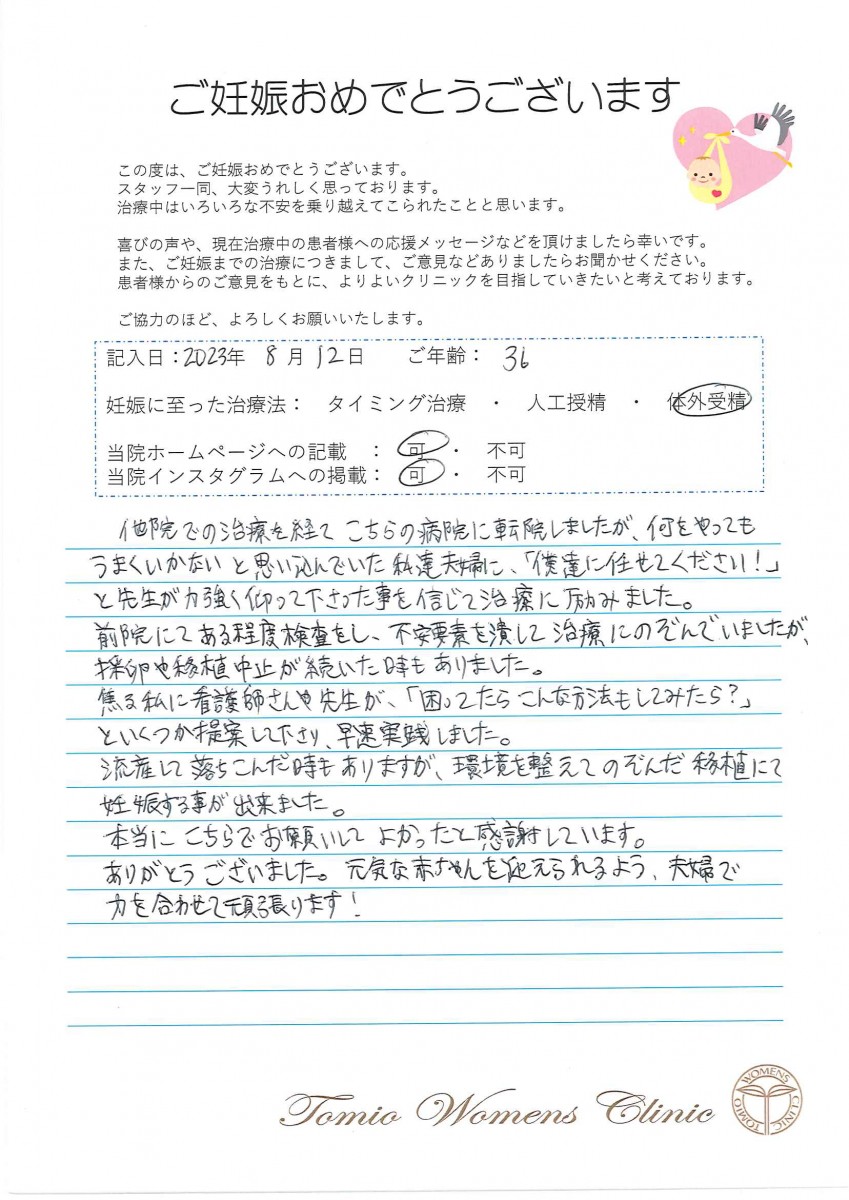 ご妊娠おめでとうございます
この度は、ご妊娠おめでとうございます。
スタッフ一同、大変うれしく思っております。
治療中はいろいろな不安を乗り越えてこられたことと思います。
喜びの声や、現在治療中の患者様への応援メッセージなどを頂けましたら幸いです。
また、ご妊娠までの治療につきまして、ご意見などありましたらお聞かせください。
患者様からのご意見をもとに、よりよいクリニックを目指していきたいと考えております。
ご協力のほど、よろしくお願いいたします。
記入日：2023年 8月12日 ご年齢： 36
妊娠に至った治療法： タイミング治療 ・ 人工授精 ・ 体外受精
当院ホームページへの記載 ： 可 ・ 不可
当院インスタグラムへの掲載： 可 ・ 不可
他院での治療を経て こちらの病院に転院しましたが、何をやっても
うまくいかない と思い込んでいた 私達夫婦に、「僕達に任せてください！」
と先生が力強く仰って下さった事を信じて治療に励みました。
前院にてある程度検査をし、不安要素を潰して治療にのぞんでいましたが、
採卵や移植中止が続いた時もありました。
焦る私に看護師さんや先生が、「困ってたらこんな方法もしてみたら？」
といくつか提案して下さり、早速実践しました。
流産して落ちこんだ時もありますが、環境を整えてのぞんだ移植にて
妊娠する事が出来ました。
本当にこちらでお願いしてよかったと感謝しています。
ありがとうございました。元気な赤ちゃんを迎えられるよう、夫婦で
力を合わせて頑張ります！
Tomio Womens Clinic
TOMIO WOMENS CLINIC